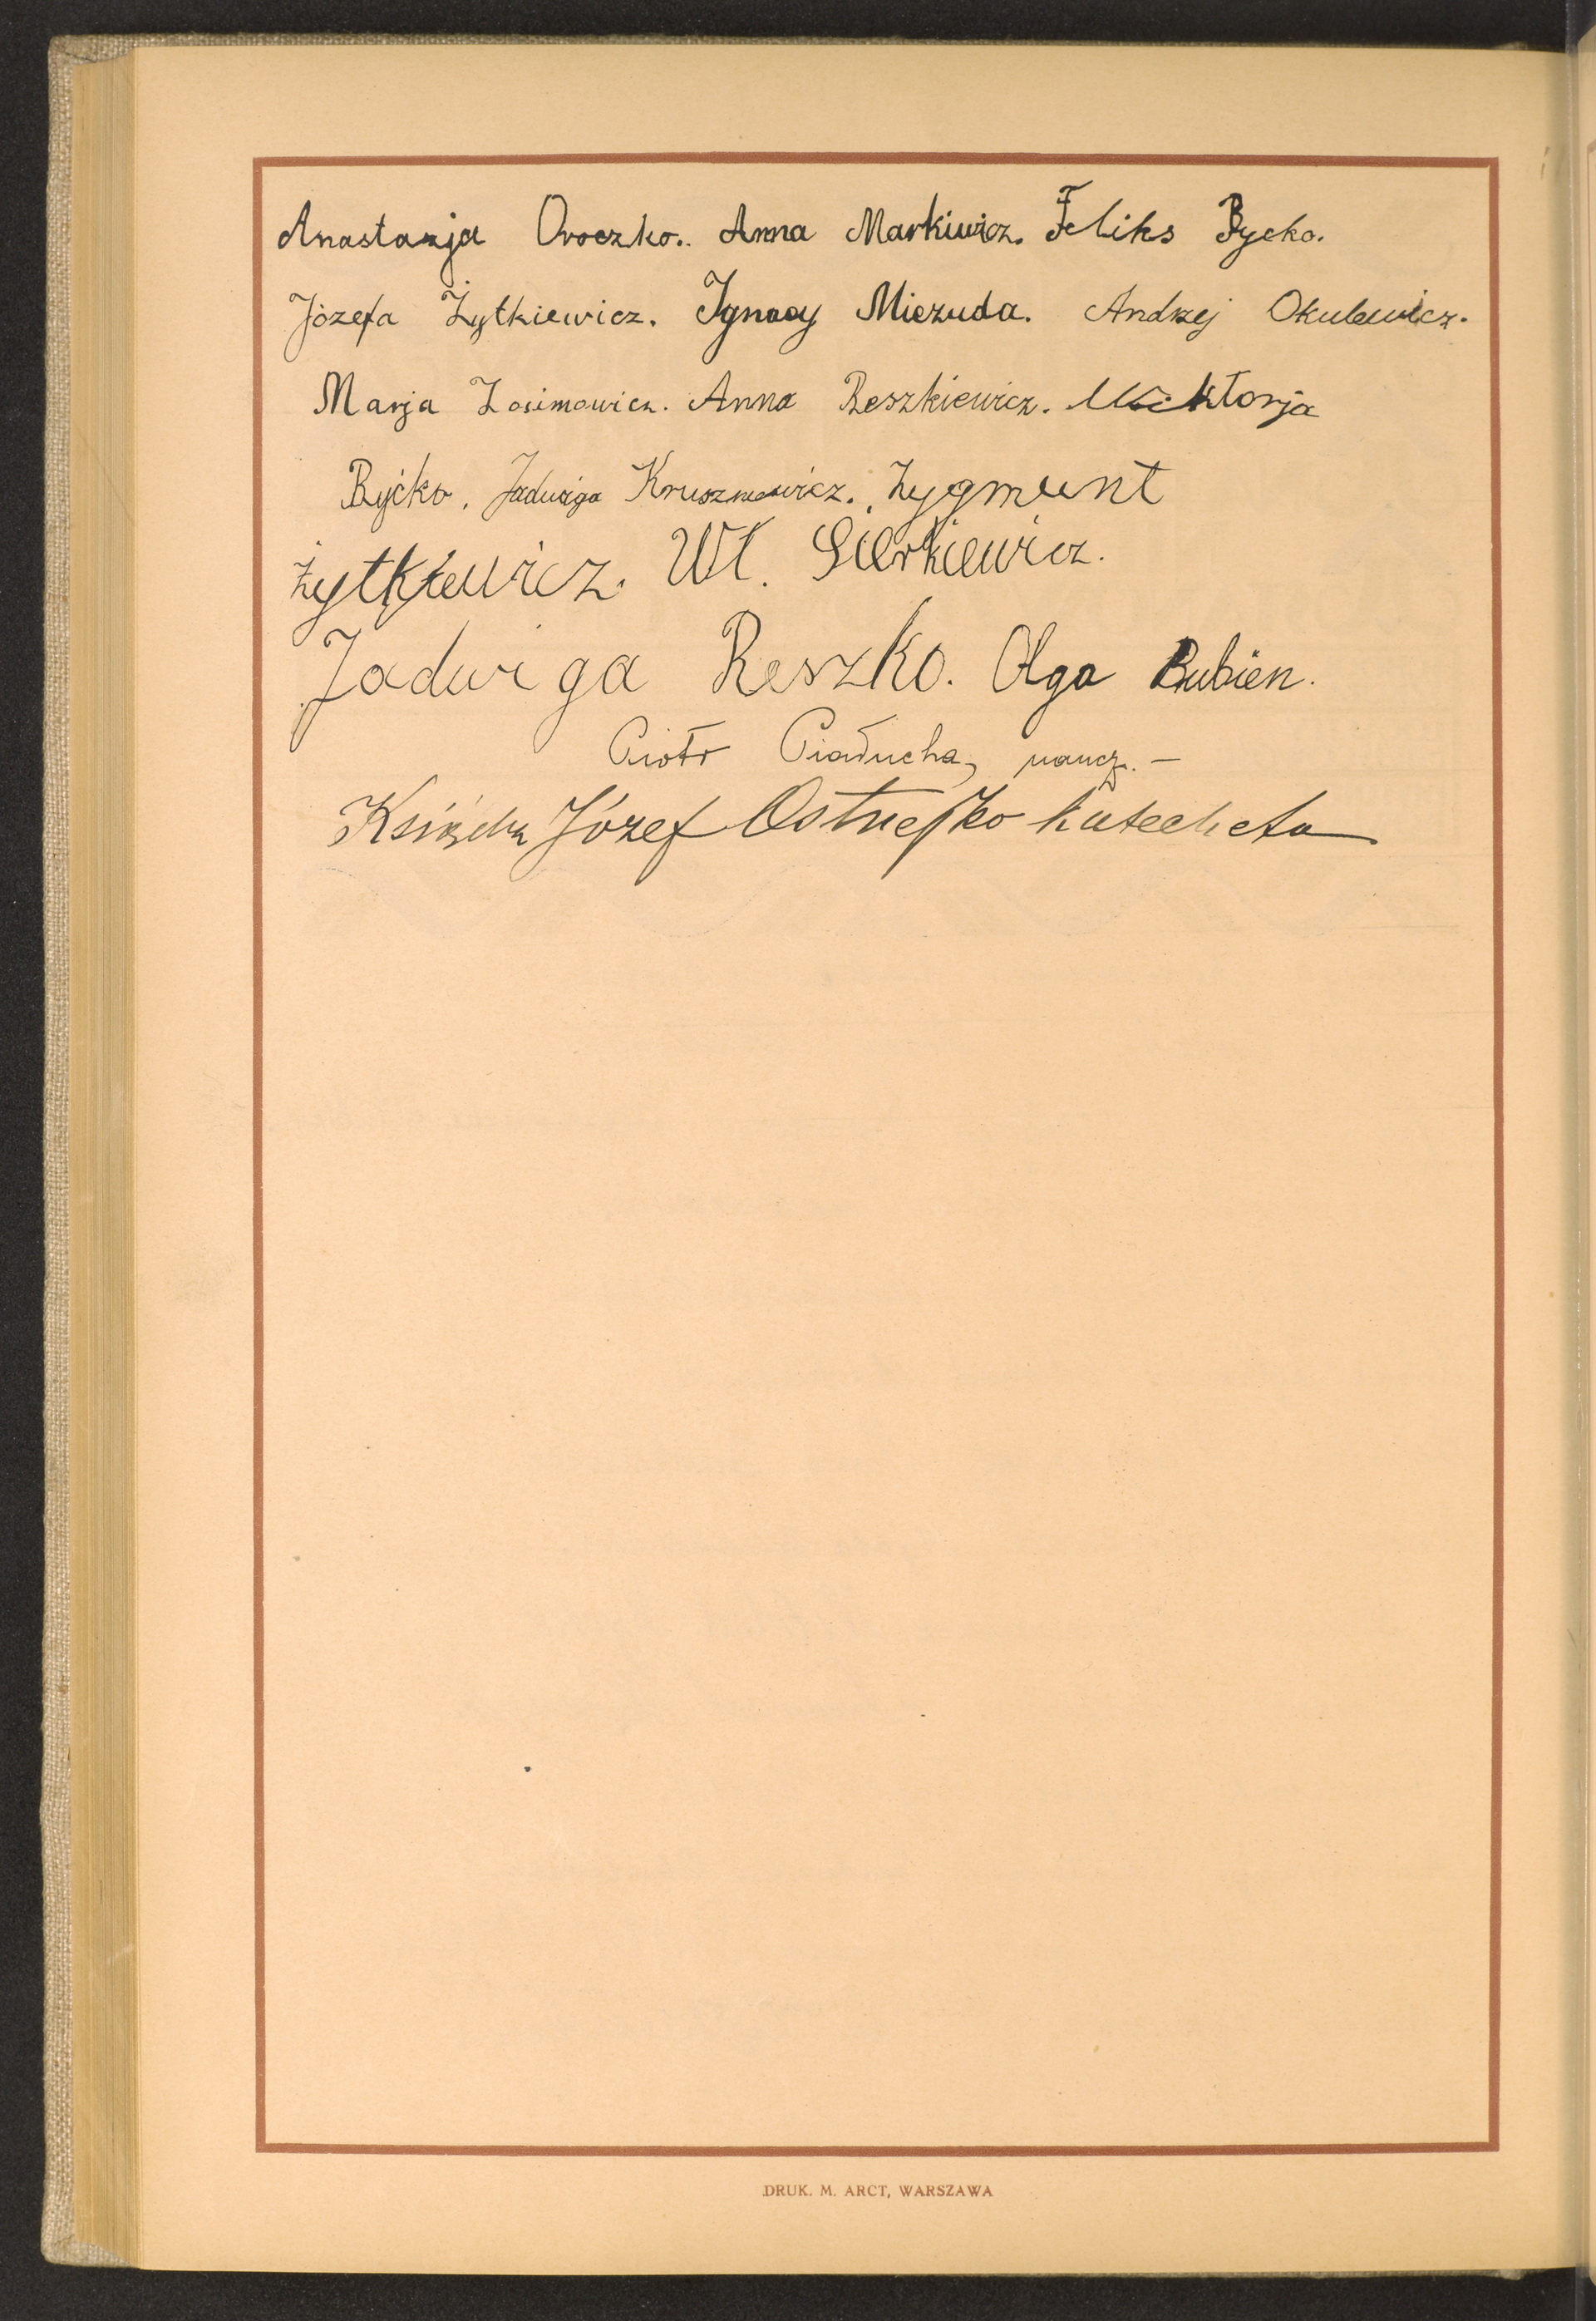 Anastazja Oroczko. Anna Markiewicz. Feliks Rycko.
Józefa Żytkiewicz. Ignacy Miezuda. Andrzej Okulewicz.
Marja Zosimowicz. Anna Reszkiewicz. Wiktorja
Ryćko. Jadwiga Kruszniewicz. Zygmunt
Żytkiewicz. Wł. Sierkiewicz.
Jadwiga Reszko. Olga Bubien.
Piotr Piałucha, naucz. –
Ksiądz Józef Ostrejko katecheta
DRUK. M. ARCT, WARSZAWA